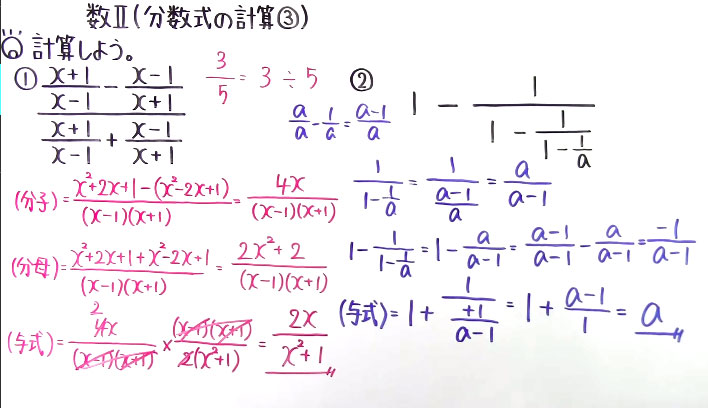 数Ⅱ(分数式の計算③)
計算しよう。
① \frac{\frac{x+1}{x-1} - \frac{x-1}{x+1}}{\frac{x+1}{x-1} + \frac{x-1}{x+1}}
\frac{3}{5} = 3 ÷ 5
(分子) = \frac{x²+2x+1-(x²-2x+1)}{(x-1)(x+1)} = \frac{4x}{(x-1)(x+1)}
(分母) = \frac{x²+2x+1+x²-2x+1}{(x-1)(x+1)} = \frac{2x²+2}{(x-1)(x+1)}
(与式) = \frac{4x}{(x-1)(x+1)} × \frac{(x-1)(x+1)}{2(x²+1)} = \frac{2x}{x²+1}
2
② 1 - \frac{1}{1 - \frac{1}{1 - \frac{1}{a}}}
\frac{a}{a} - \frac{1}{a} = \frac{a-1}{a}
\frac{1}{1-\frac{1}{a}} = \frac{1}{\frac{a-1}{a}} = \frac{a}{a-1}
1 - \frac{1}{1-\frac{1}{a}} = 1 - \frac{a}{a-1} = \frac{a-1}{a-1} - \frac{a}{a-1} = \frac{-1}{a-1}
(与式) = 1 + \frac{1}{\frac{+1}{a-1}} = 1 + \frac{a-1}{1} = a